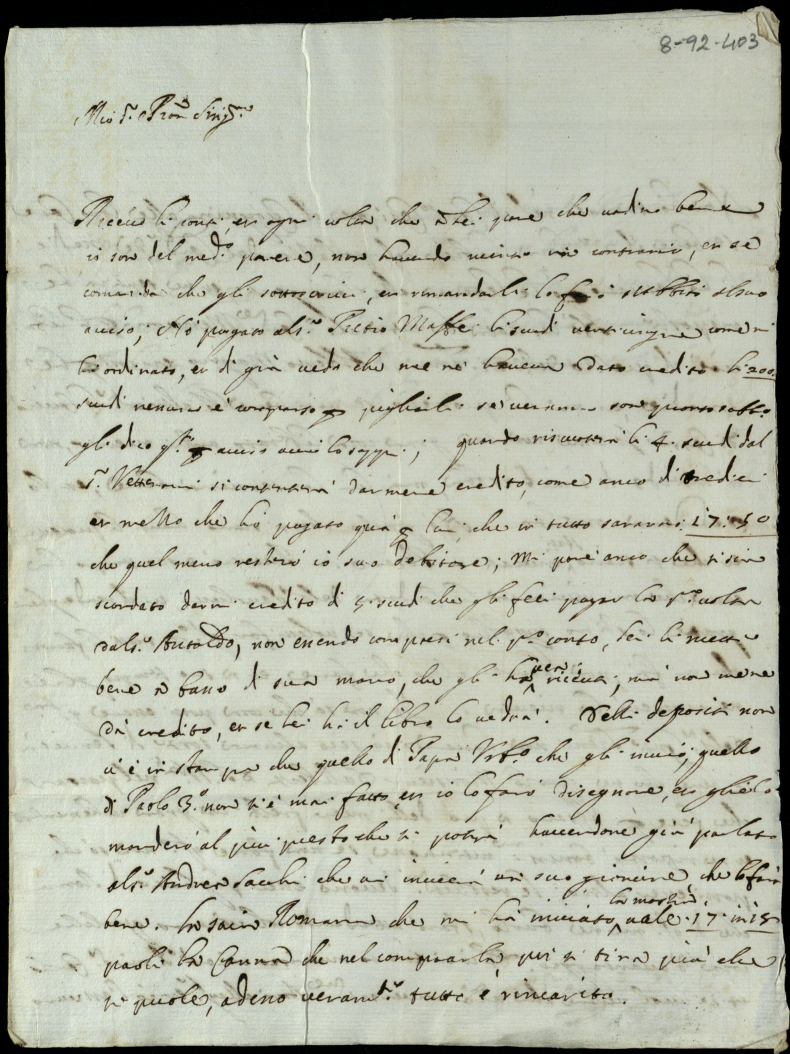 8-92-403
Mio S.r e Pron Sing.mo
Riceuo li conti, et ogni volta che à lei pare che vadino bene
io son del med.o parere, non hauendo in contrario, et se
comanda che gli sottoscriui, et rimandarli lo farò subbito
auiso; Hò pagato al S.r Pietro Maffei li scudi venticinque come mi
hà ordinato, et di già vedo che me ne haueua dato credito. li 200
scudi nessuno è comparso p pigliarli se veranno
gli dico p auiso ; quando riscoterà li 4 scudi dal
S.r si contenterà darmene credito, come anco di tredici
et mezzo che hò pagato quà p lui, che in tutto saranno 17:50
che quel meno resterò io suo debitore; Mi pare anco che si sia
scordato darmi credito di 5 scudi che gli feci pagar la p.a volta
dal S.r Ansaldo, non essendo compresi nel p.o conto, lei li mette
bene a basso di sua mano, che gli hà riceuti, mà non mene
dà credito, et se lei hà il libro lo vedrà. Delli depositi non
vi è in stampa che quello di Papa Vrb.o che gli inuio, quello
di Paolo 3.o non si è mai fatto, et io lo farò disegnare, et glielo
manderò al più presto che si potrà hauendone già parlato
al S.r Andrea Sacchi che mi inuierà un suo giouine che lo farà
bene. la saia Romana che mi hà inuiato la mostra, vale 17 in 18
paoli la Canna che nel comprarla poi si tira più che
si puole, adesso veram.te tutto è rincarito.